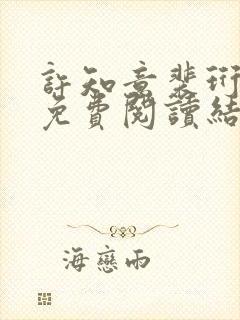 許知意裴珩
免費閱讀結
海戀雨